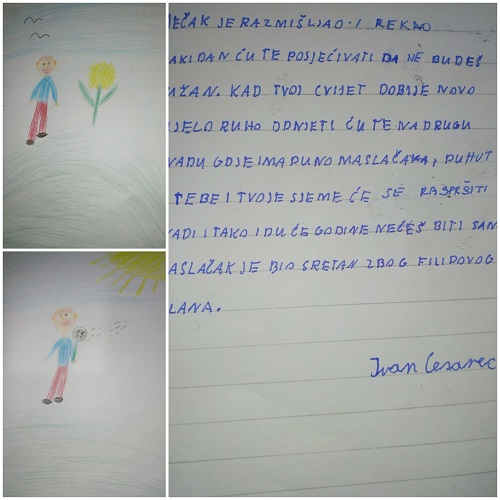 JEČAK JE RAZMIŠLJAO I REKAO
AKI DAN ĆU TE POSJEĆIVATI DA NE BUDEŠ
UŽAN. KAD TVOJ CVIJET DOBIJE NOVO
IJELO RUHO ODNJETI ĆU TE NA DRUGU
VADU GDJE IMA PUNO MASLAČAKA, PUHUT
TEBE I TVOJE SJEME ĆE SE RASPRŠITI
ADI I TAKO IDUĆE GODINE NEĆEŠ BITI SAM
ASLAČAK JE BIO SRETAN ZBOG FILIPOVOG
LANA.
Ivan Cesarec